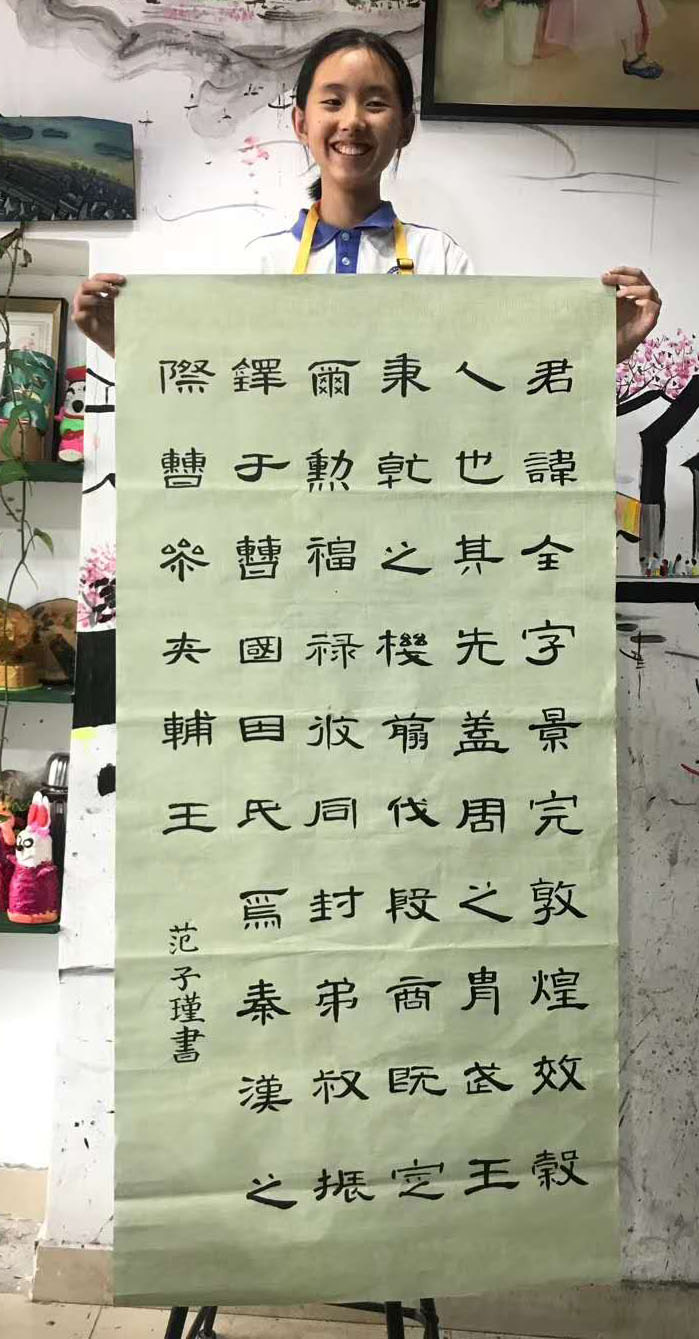 君諱全字景完敦煌效穀
人也其先蓋周之胄武王
秉乾之機翦伐殷商既定
爾勳福禄攸同封弟叔振
鐸于曹國因氏焉秦漢之
際曹參夾輔王
范子瑾書